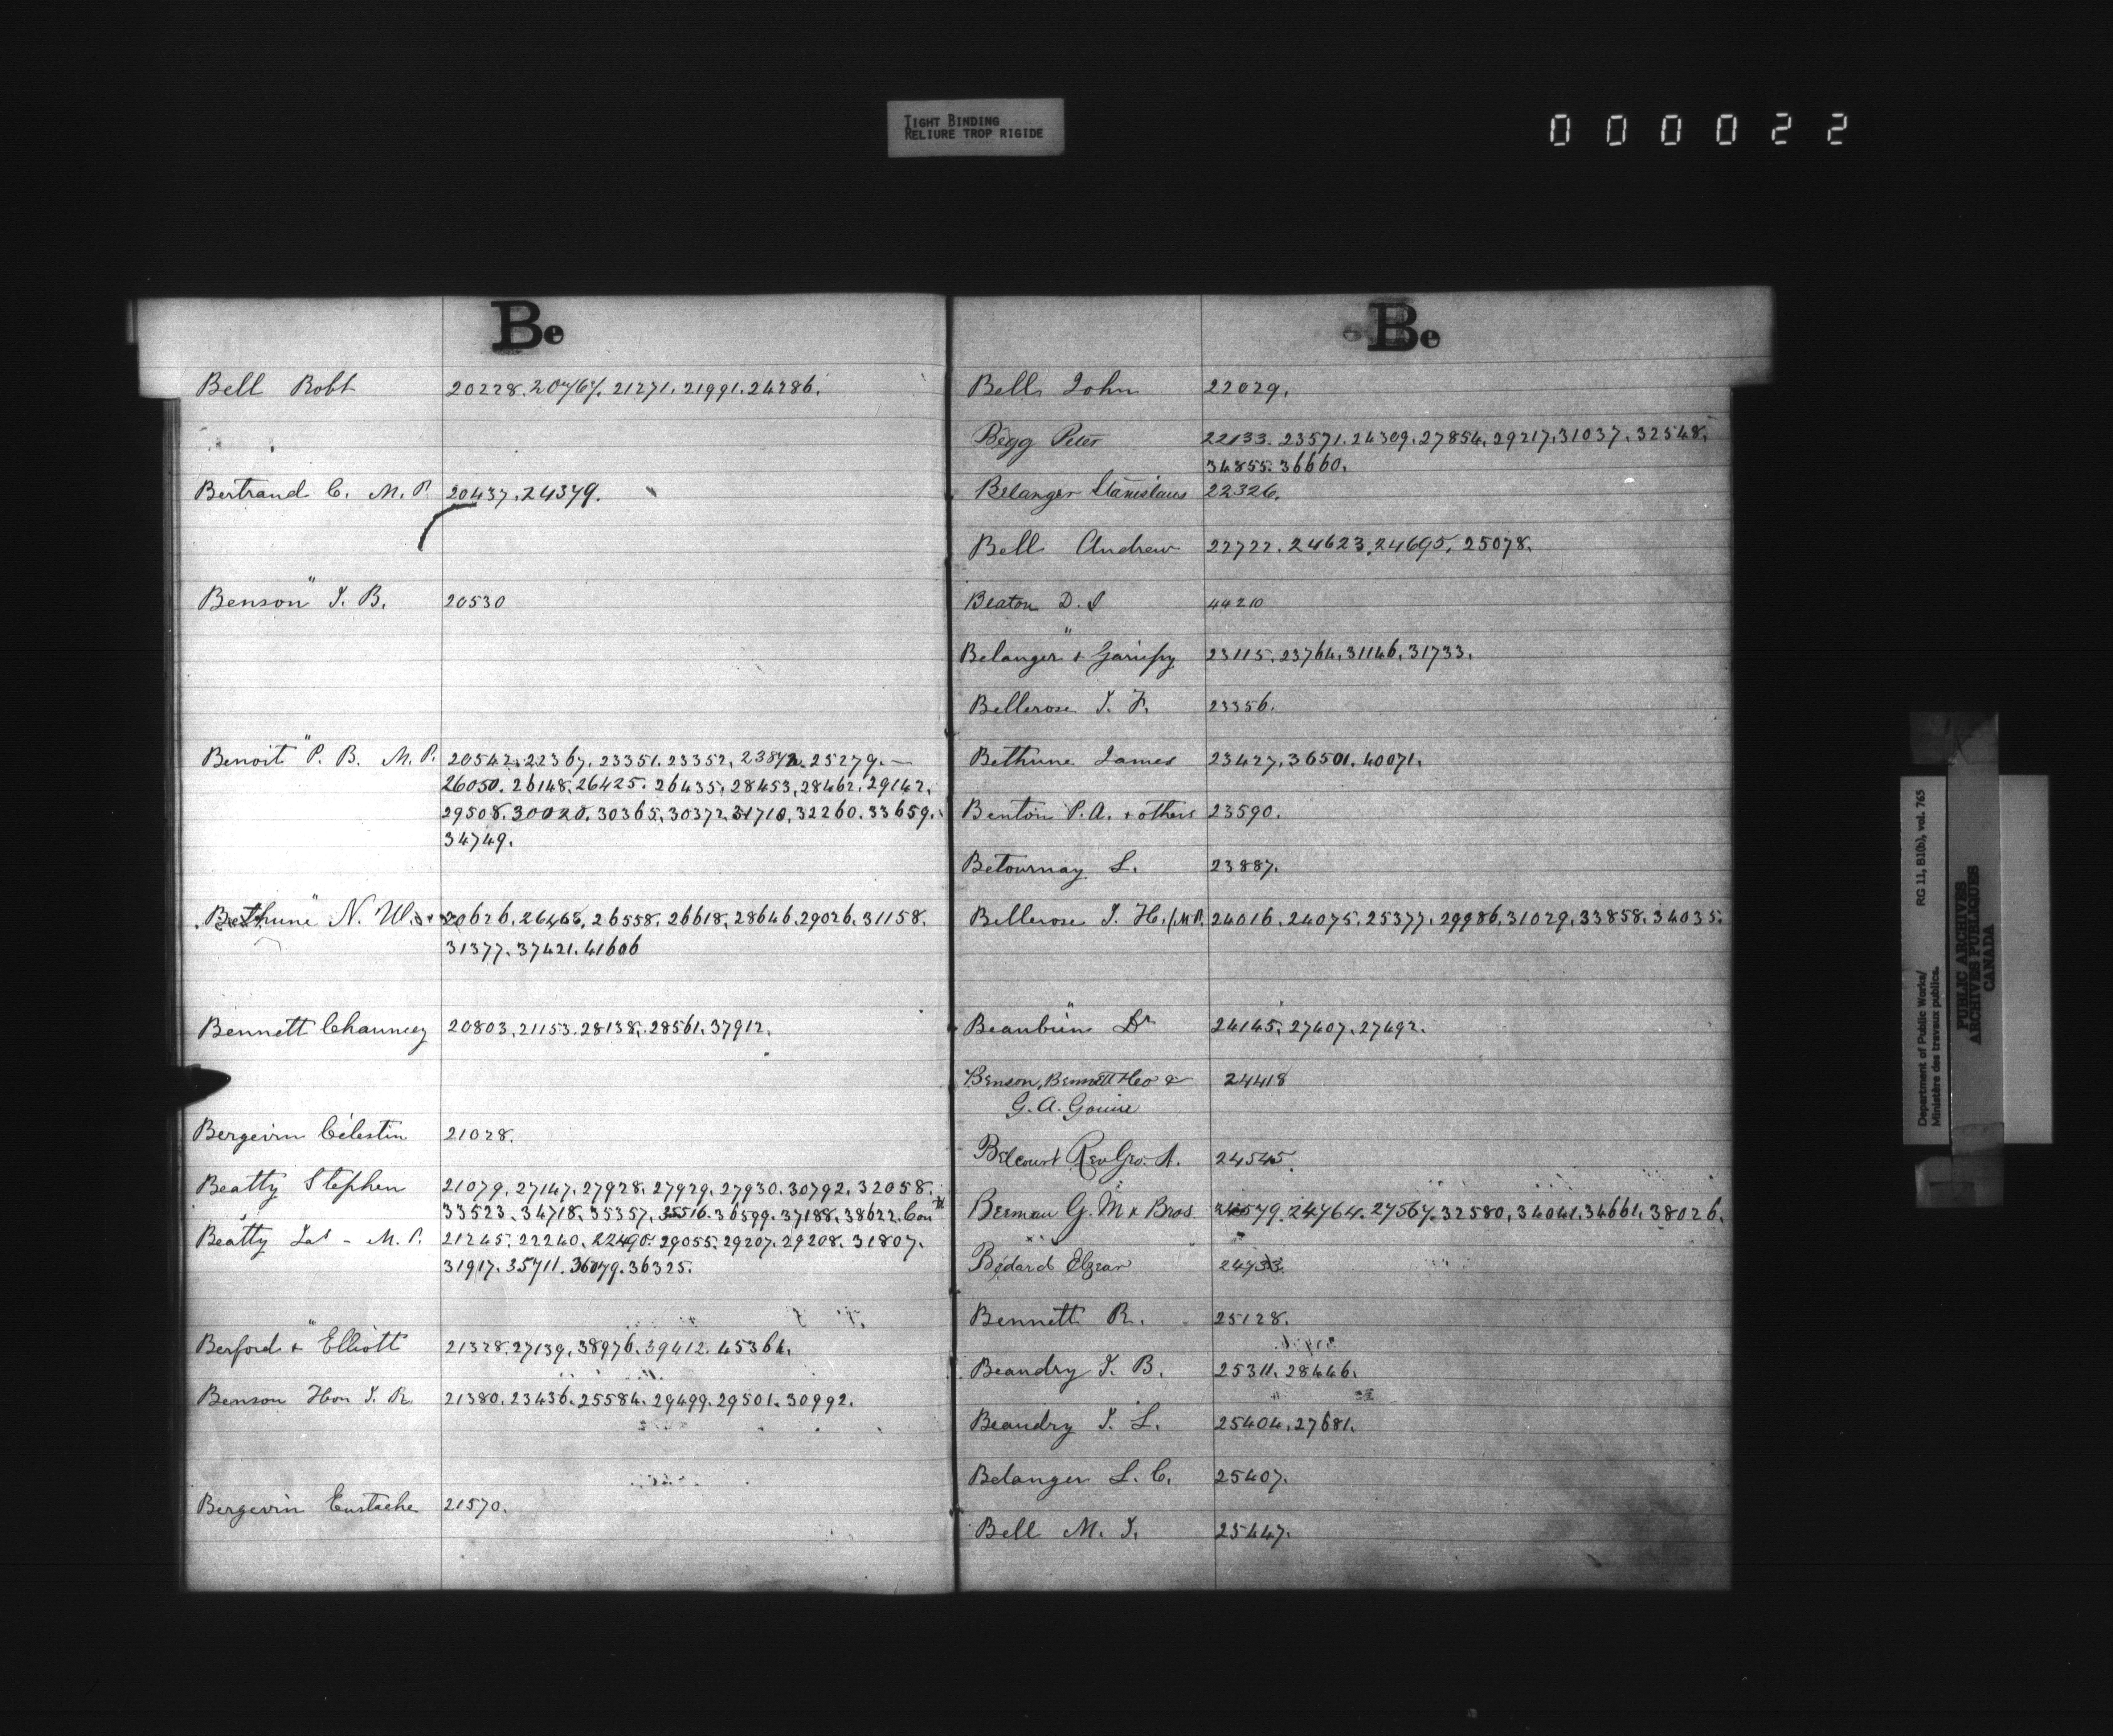 TIGHT BINDING
RELIURE TROP RIGIDE
000022
Be
Bell Robt 20228. 20467. 21271. 21991. 24286.
Bertrand C. M. P. 20437. 24379.
Benson J. B. 20530
Benoit P. B. M. P. 20542. 22367. 23351. 23352. 25279. —
26050. 26148. 26425. 26435. 28453. 28462. 29142.
29508. 30020. 30365. 30372. 31710. 32260. 33659.
34749.
Bethune N. W. 20626. 26465. 26558. 26618. 28646. 29026. 31158.
31377. 37421. 41606
Bennett Chauncey 20803. 21153. 28138. 28561. 37912.
Bergevin Célestin 21028.
Beatty Stephen 21079. 27147. 27928. 27929. 27930. 30792. 32058.
33523. 34718. 35357. 35516. 36599. 37188. 38622. Con
Beatty Jas - M. P. 21245. 22240. 22490. 29055. 29207. 29208. 31807.
31917. 35711. 36079. 36325.
Berford & Elliott 21328. 27139. 38976. 39412. 45364.
Benson Hon J. R. 21380. 23436. 25584. 29499. 29501. 30992.
Bergevin Eustache 21570.
Be
Bell John 22029.
Begg Peter 22133. 23571. 24309. 27854. 29217. 31037. 32548.
34855. 36660.
Belanger Stanislaus 22326.
Bell Andrew 22722. 24623. 24695. 25078.
Beaton D. J 44210
Belanger & Gariepy 23115. 23764. 31146. 31733.
Bellerose J. F. 23356.
Bethune James 23427. 36501. 40071.
Benton P. A. & others 23590.
Betournay L. 23887.
Bellerose J. H. (M.P. 24016. 24075. 25377. 29986. 31029. 33858. 34035.
Beaubien Dr 24145. 27407. 27492.
Benson, Bennett Heo & 24418
G. A. Gouine
Belcourt Rev Geo. A. 24545.
Berman G. M & Bros. 24579. 24764. 27567. 32580. 34041. 34661. 38026.
Bédard Elzear 24733.
Bennett R. 25128.
Beaudry J. B. 25311. 28446.
Beaudry J. L. 25404. 27681.
Belanger L. C. 25407.
Bell M. J. 25447.
Department of Public Works/ RG 11, B1(b), vol. 765
Ministère des travaux publics.
PUBLIC ARCHIVES
ARCHIVES PUBLIQUES
CANADA